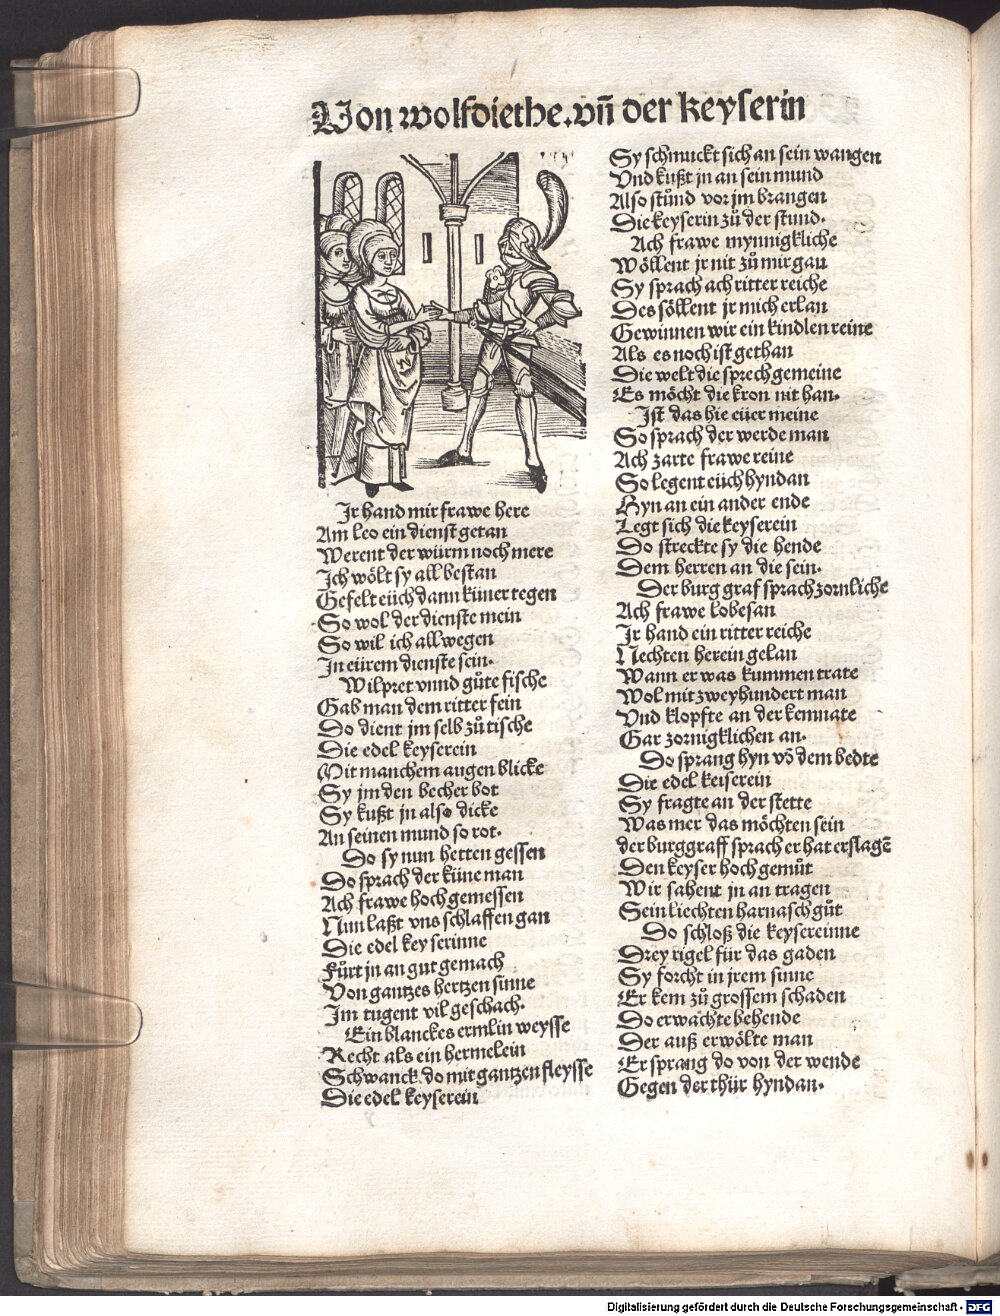 Von wolfdiethe. vñ der keyserin
Ir hand mir frawe here
Am leo ein dienst getan
Werent der würm noch mere
Ich wölt sy all bestan
Gefelt eüch dann küner tegen
So wol der dienste mein
So wil ich allwegen
In eürem dienste sein.
Wilpret vnnd gůte fische
Gab man dem ritter fein
Do dient jm selb zů tische
Die edel keyserein
Mit manchem augen blicke
Sy jm den becher bot
Sy kußt jn also dicke
An seinen mund so rot.
Do sy nun hetten gessen
Do sprach der küne man
Ach frawe hoch gemessen
Nun laßt vns schlaffen gan
Die edel keyserinne
Fůrt jn an gut gemach
Von gantzes hertzen sinne
Im tugent vil geschach.
Ein blanckes ermlin weysse
Recht als ein hermelein
Schwanck do mit gantzen fleysse
Die edel keyserein
Sy schmuckt sich an sein wangen
Vnd kußt jn an sein mund
Also stůnd vor jm brangen
Die keyserin zů der stund.
Ach frawe mynnigkliche
Wöllent jr nit zů mir gan
Sy sprach ach ritter reiche
Des söllent jr mich erlan
Gewinnen wir ein kindlen reine
Als es noch ist gethan
Die welt die sprech gemeine
Es möcht die kron nit han.
Ist das hie eüer meine
So sprach der werde man
Ach zarte frawe reine
So legent eüch hyndan
Hyn an ein ander ende
Legt sich die keyserein
Do streckte sy die hende
Dem herren an die sein.
Der burg graf sprach zornliche
Ach frawe lobesan
Ir hand ein ritter reiche
Nechten herein gelan
Wann er was kummen trate
Wol mit zweyhundert man
Vnd klopfte an der kemnate
Gar zornigklichen an.
Do sprang hyn võ dem bedte
Die edel keiserein
Sy fragte an der stette
Was mer das möchten sein
der burggraff sprach er hat erslagẽ
Den keyser hoch gemůt
Wir sahent jn an tragen
Sein liechten harnasch gůt
Do schloß die keysereinne
Drey rigel für das gaden
Sy forcht in jrem sinne
Er kem zů grossem schaden
Do erwachte behende
Der auß erwölte man
Er sprang do von der wende
Gegen der thür hyndan.
Digitalisierung gefördert durch die Deutsche Forschungsgemeinschaft - DFG